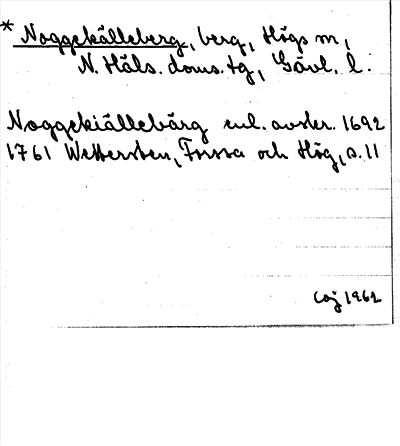 * Noggekälleberg, berg, Högs m,
N. Häls. doms. tg, Gävl. l.
Noggekiällebärg enl. avskr. 1692
1761 Wettersten, Forssa och Hög, s. 11
CaJ 1962